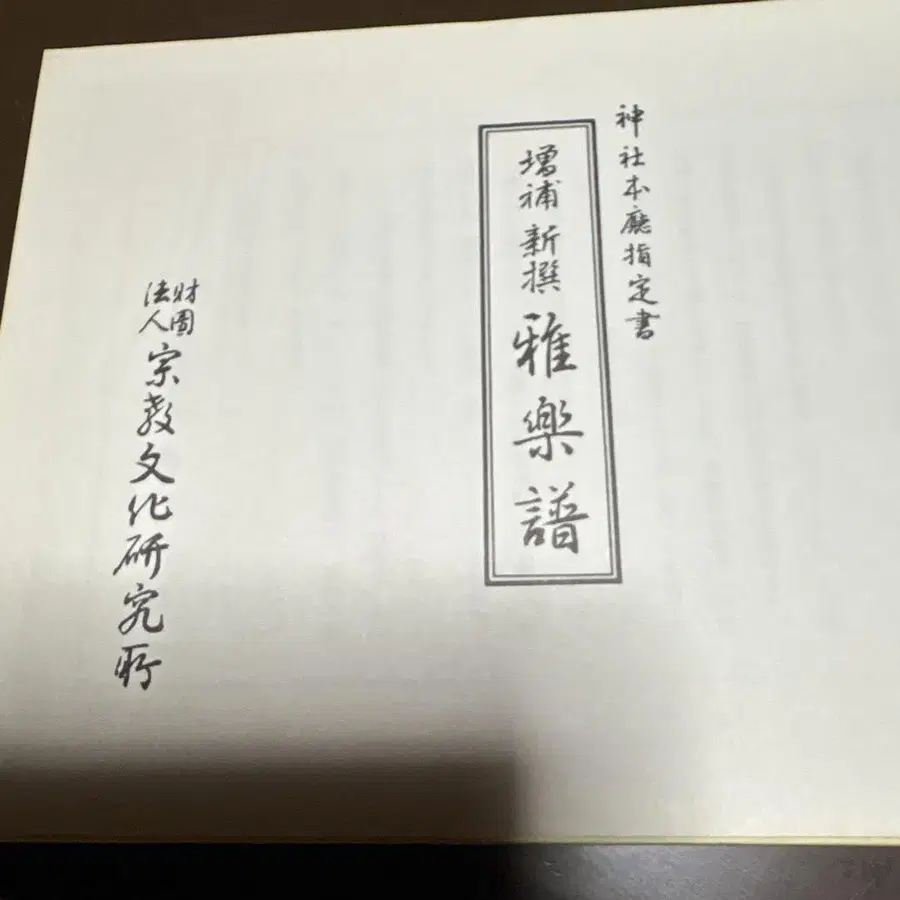 神社本廳指定書
増補 新撰 雅樂譜
財團
法人
宗教文化研究所